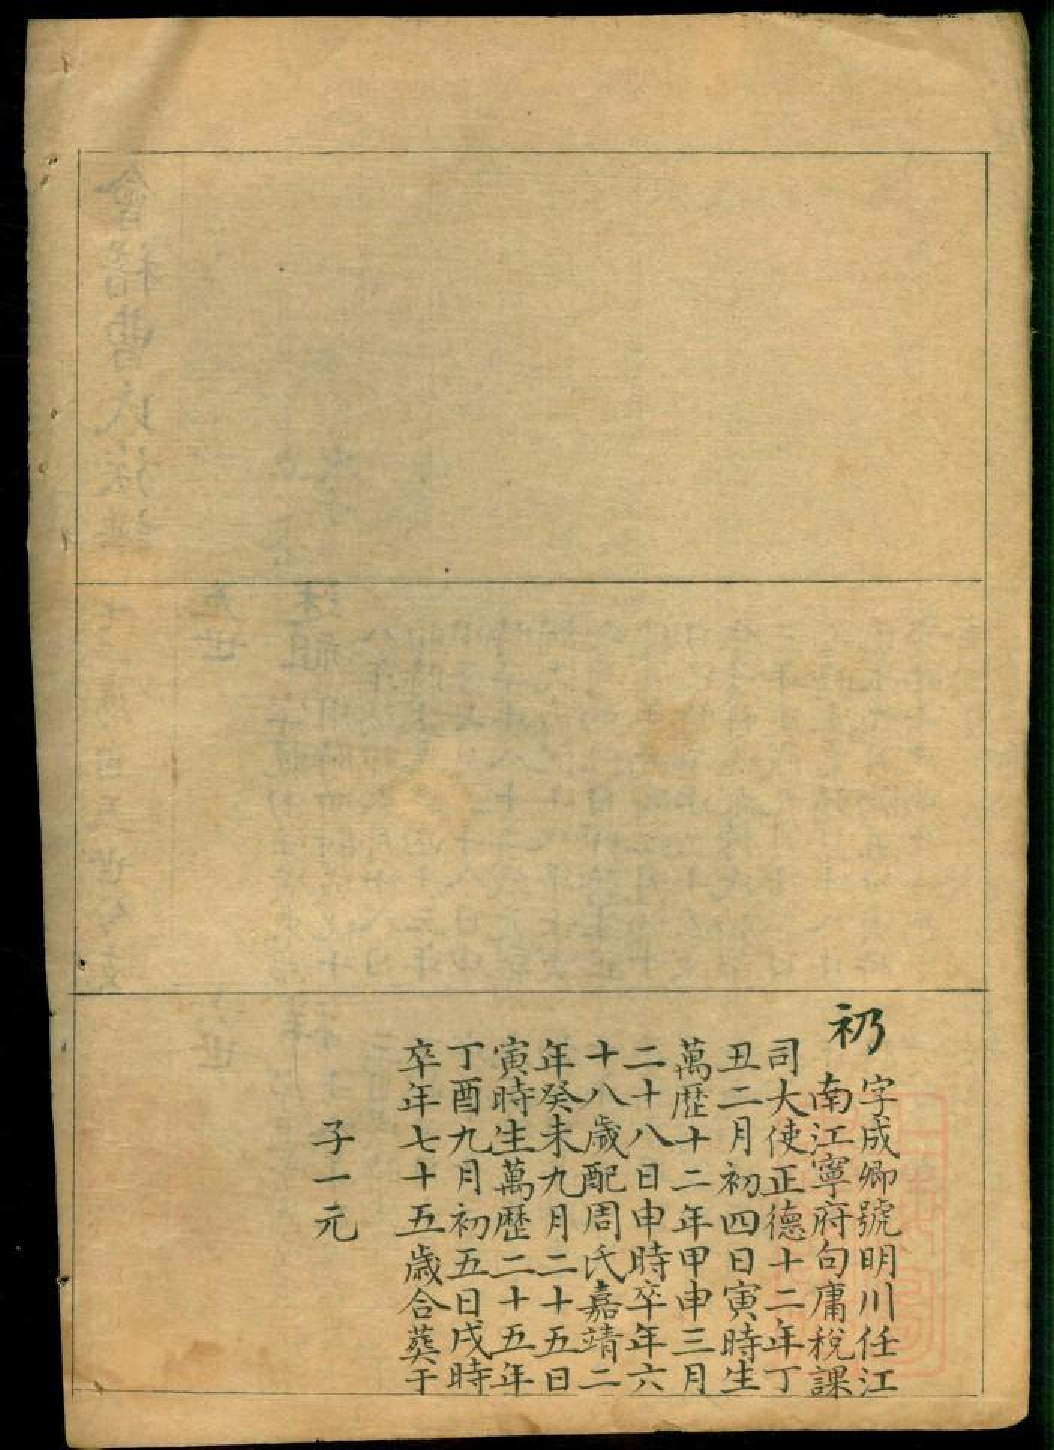 初
字成卿號明川任江
南江寧府句庸稅課
司大使正德十二年丁
丑二月初四日寅時生
萬歷十二年甲申三月
二十八日申時卒年六
十八歲配周氏嘉靖二
年癸未九月二十五日
寅時生萬歷二十五年
丁酉九月初五日戌時
卒年七十五歲合葬于
子一元